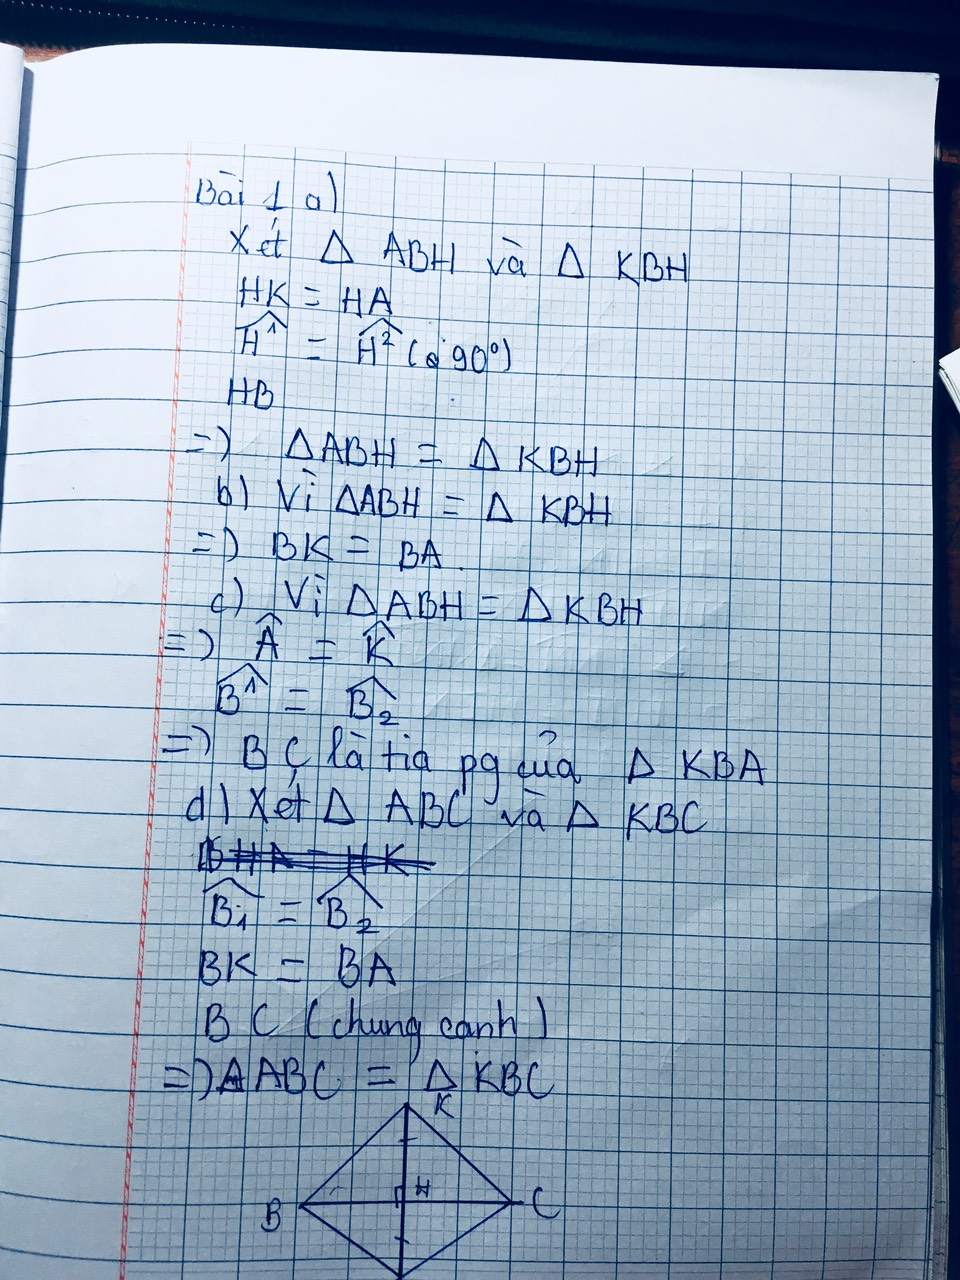 Bài 1 a)
Xét Δ ABH và Δ KBH
HK = HA
Ĥ¹ = Ĥ² ( 90°)
HB
=) ΔABH = Δ KBH
b) Vì ΔABH = Δ KBH
=) BK = BA.
c) Vì ΔABH = ΔKBH
=) Â = K̂
B̂¹ = B̂₂
=) BC là tia pg của Δ KBA
d) Xét Δ ABC và Δ KBC
B̂₁ = B̂₂
BK = BA
BC (chung cạnh)
=) ΔABC = Δ KBC
K
H
B
C